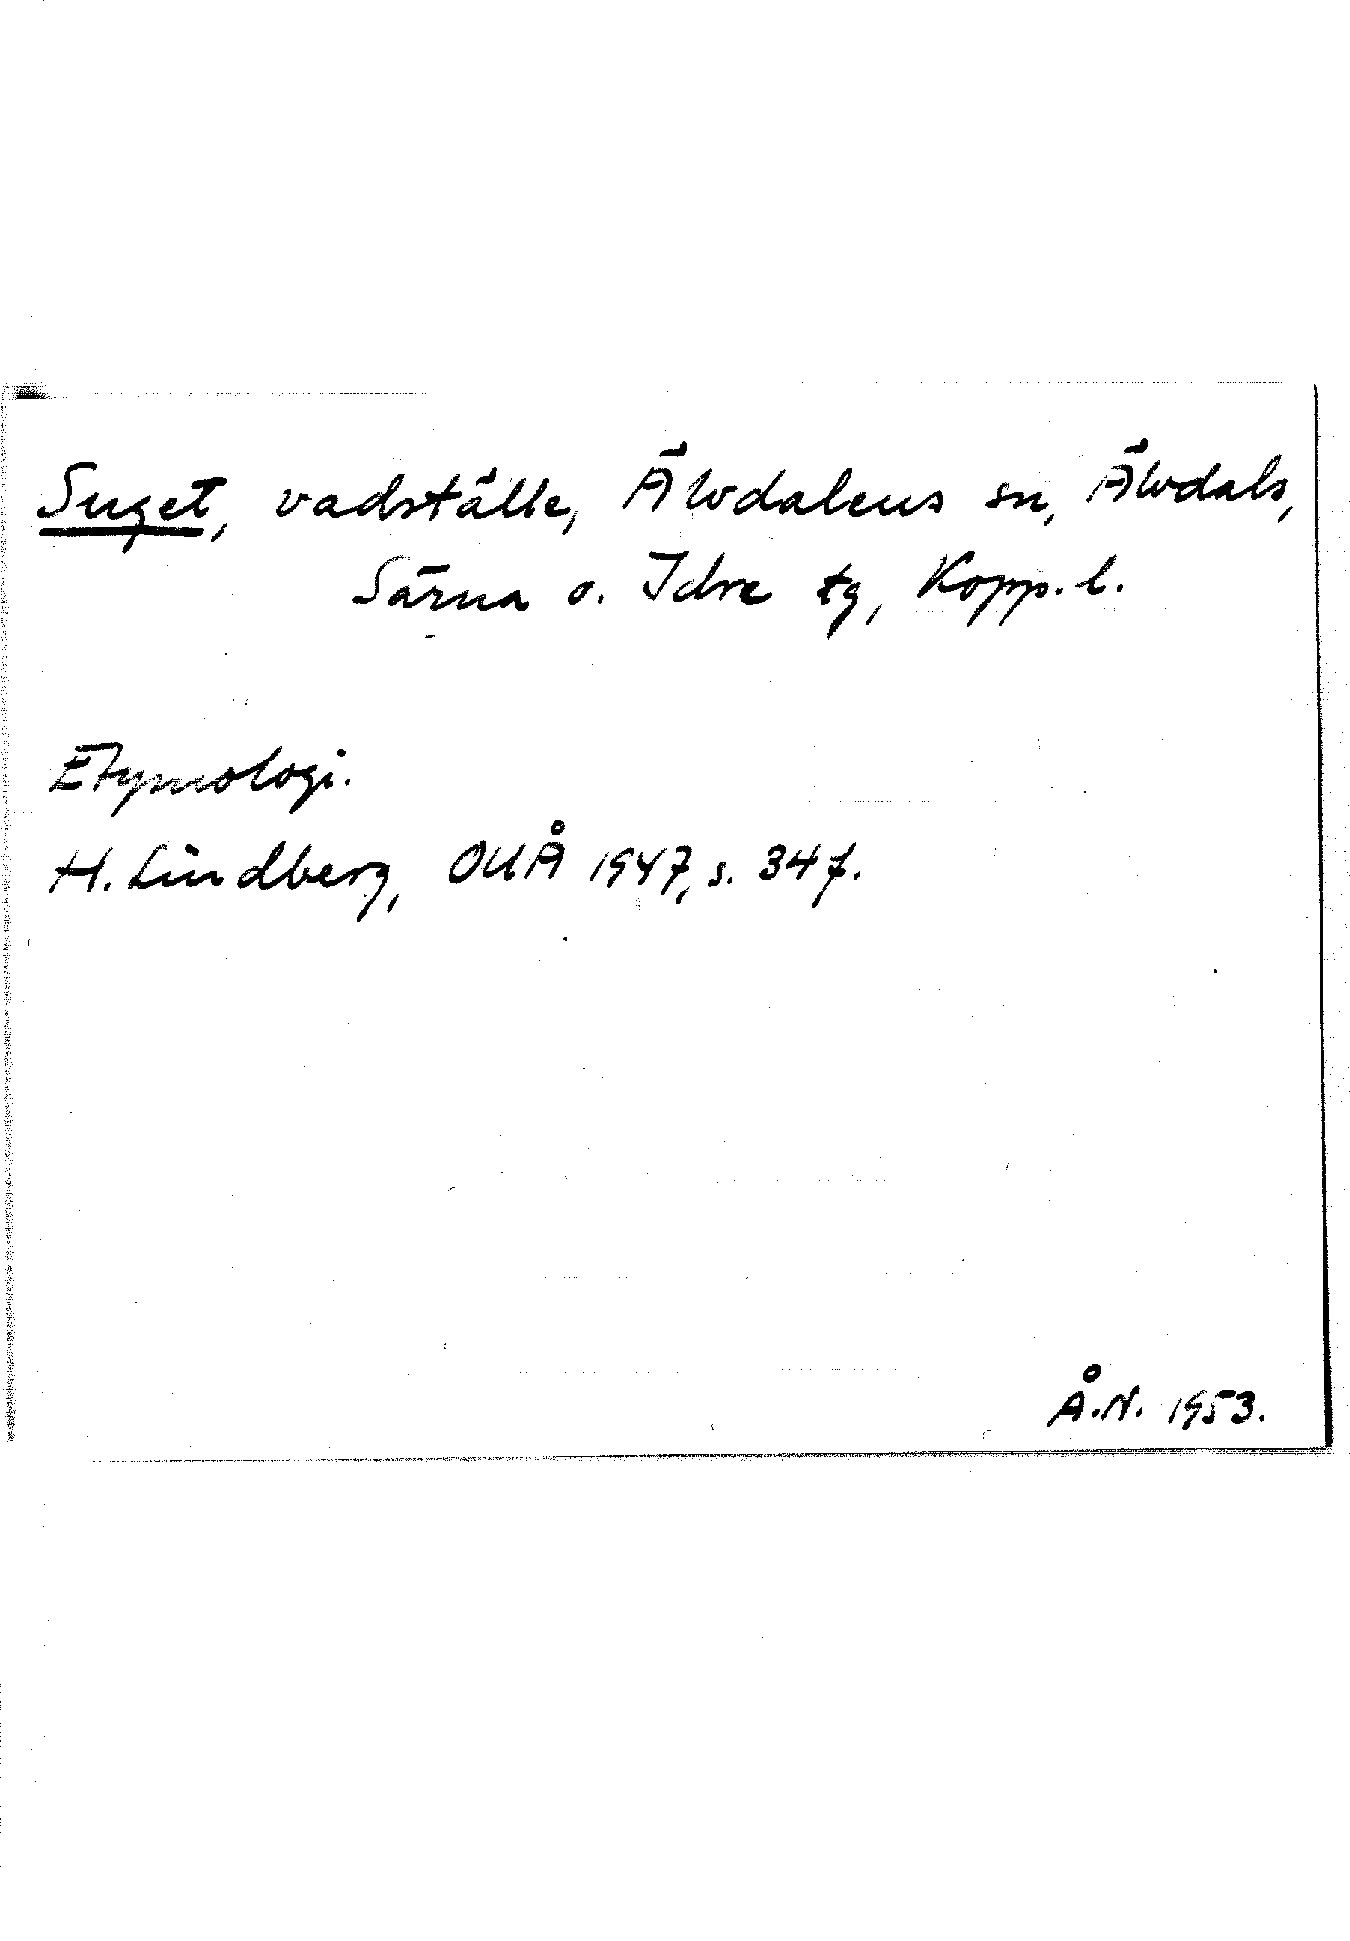 Suget, vadställe, Älvdalens sn, Älvdals,
Särna o. Idre tg, Kopp. l.
Etymologi.
H. Lindberg, OUÅ 1947, s. 34 f.
Å.N. 1953.